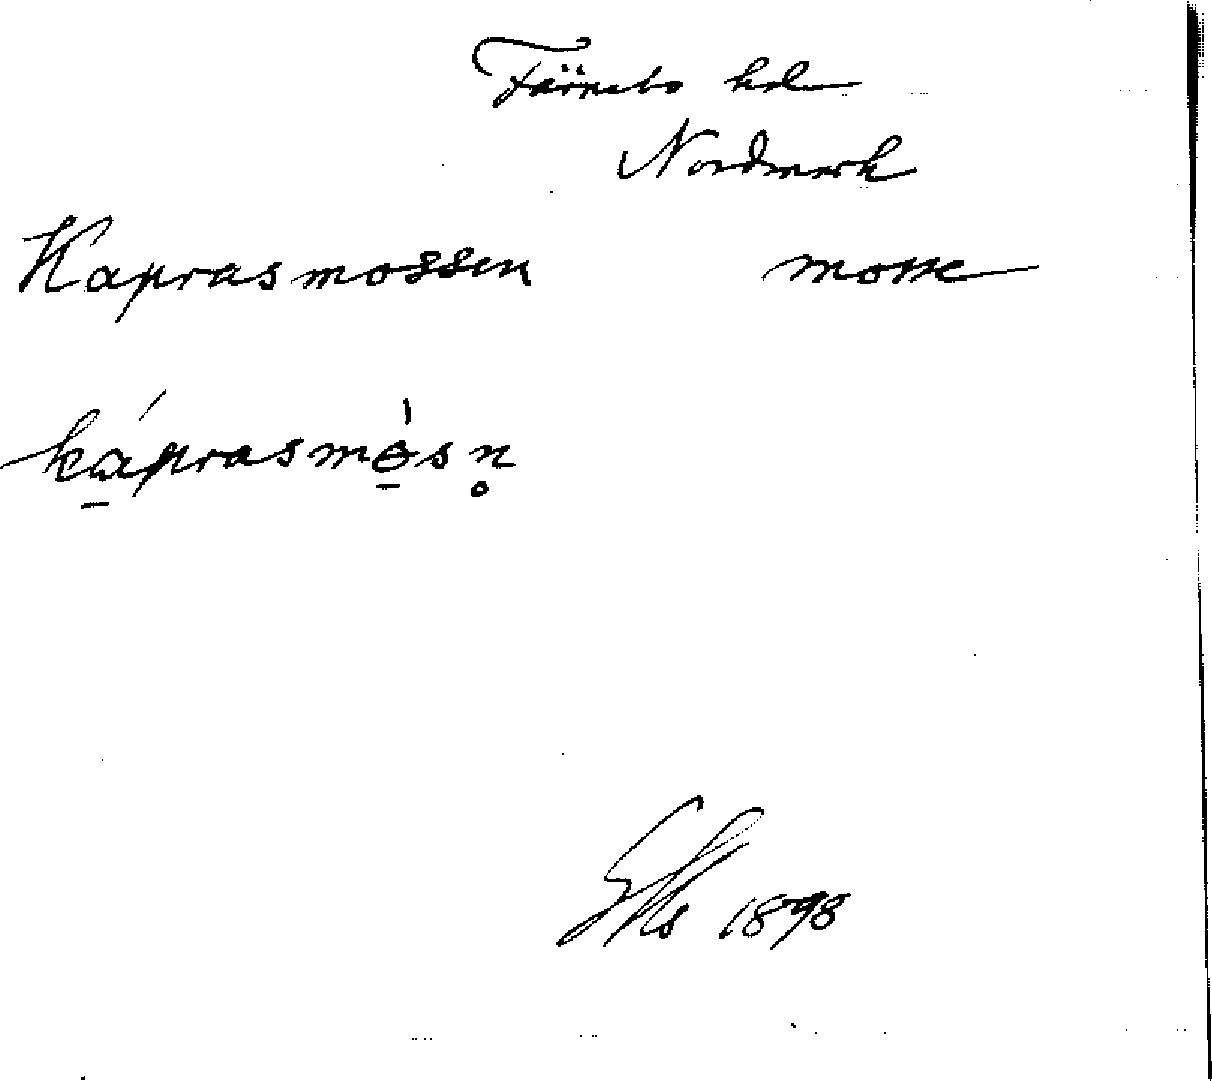 Färnebo hd
Nordmark
Kaprasmossen mosse
káprasmòsn̥
1898